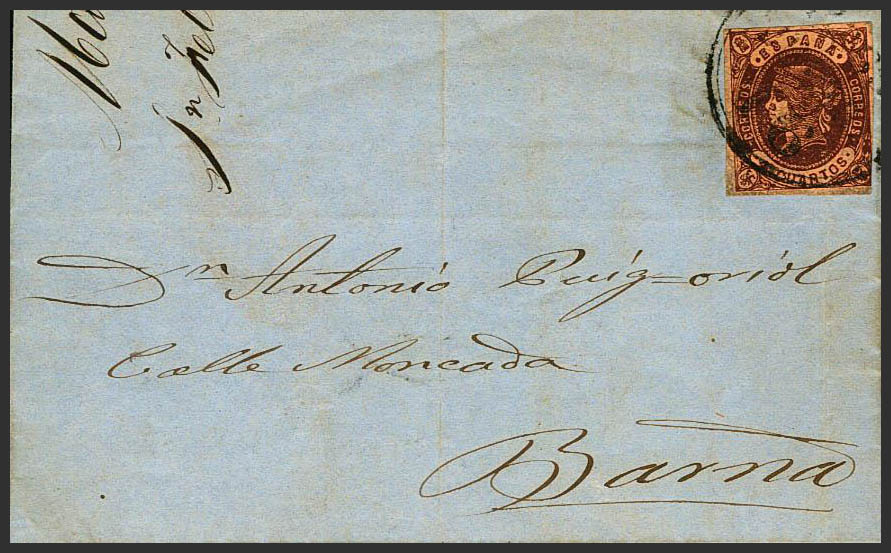 ESPAÑA
CORREOS
CORREOS
CUARTOS
Dn Antonio Puig=oriol
Calle Moncada
Barna